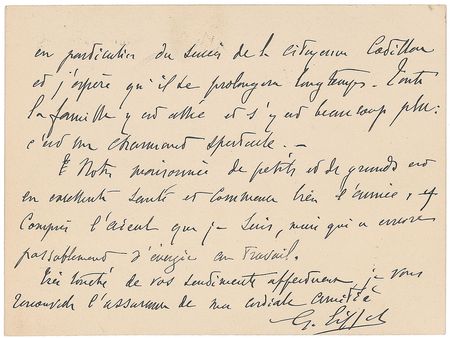 en particulier du succès de la citoyenne Cotillon
et j'espère qu'il se prolongera longtemps. Toute
la famille y est allée et s'y est beaucoup plu:
c'est un charmant spectacle. —
Notre maisonnée de petits et de grands est
en excellente santé et commence bien l'année, y
compris l'aïeul que je suis, mais qui a encore
passablement d'énergie au travail.
Très touché de vos sentiments affectueux, je vous
renouvelle l'assurance de ma cordiale amitié
G. Eiffel